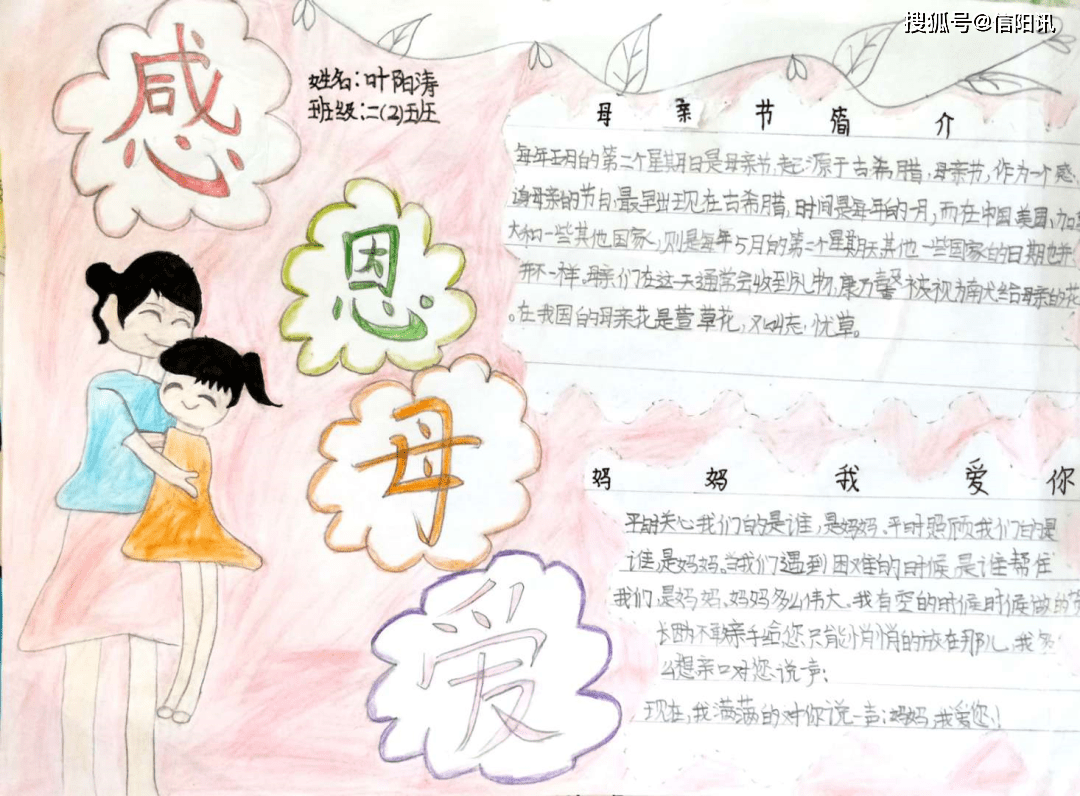 搜狐号@信阳讯
感
恩
母
爱
姓名:叶阳涛
班级:二(2)班
母亲节简介
每年五月的第二个星期日是母亲节,起源于古希腊,母亲节,作为一个感
谢母亲的节日,最早出现在古希腊,时间是每年的一月,而在中国、美国、加拿
大和一些其他国家,则是每年5月的第二个星期天,其他一些国家的日期也并
不一样。母亲们在这一天通常会收到礼物,康乃馨被视为献给母亲的花
。在我国的母亲花是萱草花,又叫忘忧草。
妈妈我爱你
平时关心我们的是谁,是妈妈。平时照顾我们的是
谁,是妈妈。当我们遇到困难的时候,是谁帮住
我们,是妈妈。妈妈多么伟大。我有空的时候时候做的贺
卡因为不敢亲手给您,只能悄悄的放在那儿,我多
么想亲口对您说声:
现在,我满满的对你说一声:妈妈,我爱您!